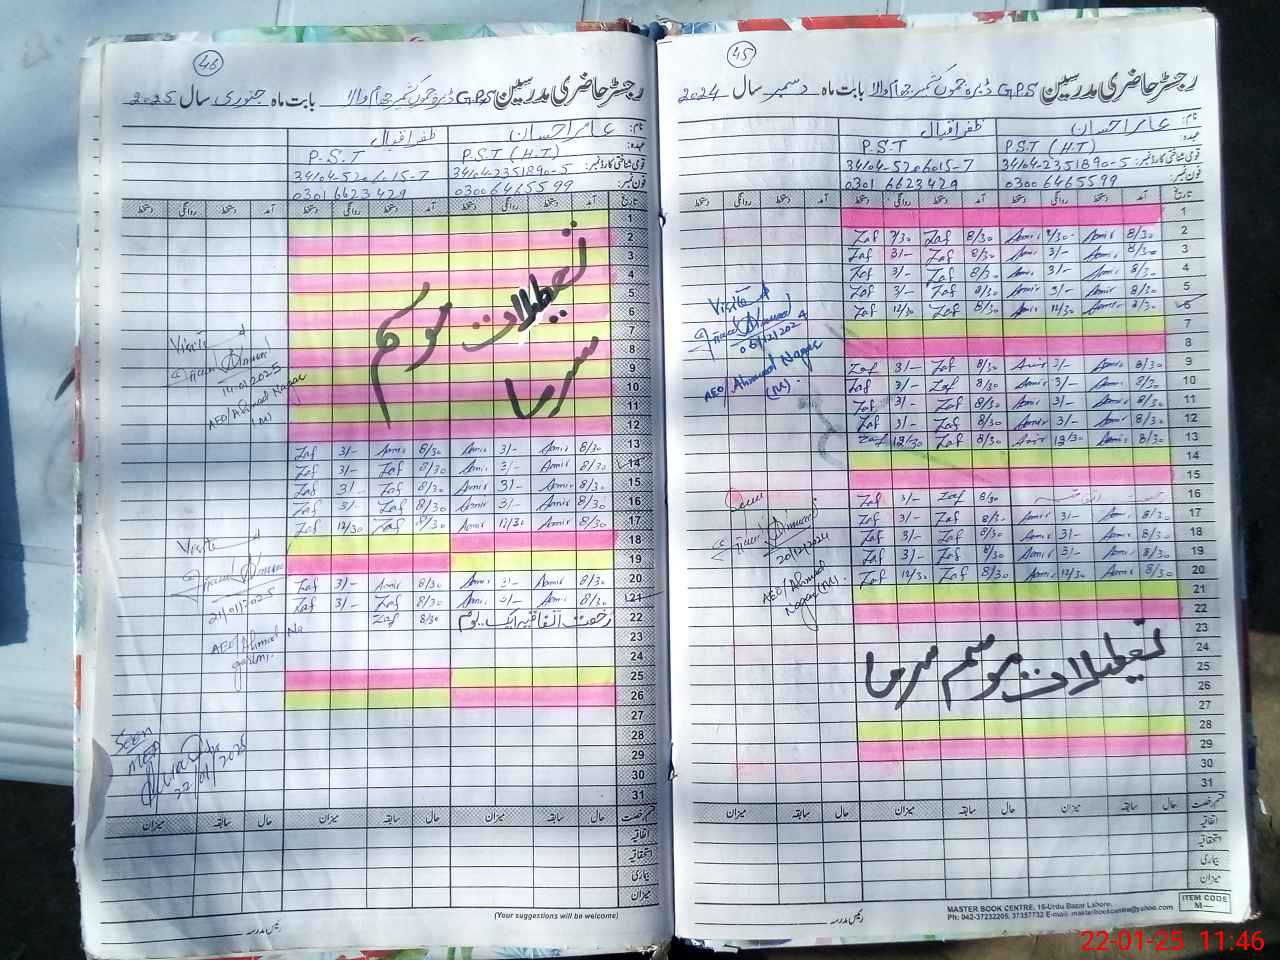 46
رجسٹر حاضری مدرسین GPS بابت ماہ جنوری سال 2025
نام: عامر احسان ظفر اقبال
عہدہ: P.S.T (H.T) P.S.T
قومی شناختی کارڈ نمبر: 34104-2351890-5 34104-5206015-7
فون نمبر: 0300 6465599 0301 6623429
تاریخ آمد دستخط روانگی دستخط آمد دستخط روانگی دستخط آمد دستخط روانگی دستخط
1
2
3
4
5
6
7
8
9
10
11
12
تعطیلات موسم
سرما
13 8/30 Amir 3/- Amir 8/30 Amir 3/- Zaf
14 8/30 Amir 3/- Amir 8/30 Zaf 3/- Zaf
15 8/30 Amir 3/- Amir 8/30 Zaf 3/- Zaf
16 8/30 Amir 3/- Amir 8/30 Zaf 3/- Zaf
17 8/30 Amir 12/30 Amir 8/30 Zaf 12/30 Zaf
18
19
20 8/30 Amir 3/- Amir 8/30 Amir 3/- Zaf
21 8/30 Amir 3/- Amir 8/30 Zaf 3/- Zaf
22 رخصت اتفاقیہ ایک یوم 8/30 Zaf
23
24
25
26
27
28
29
30
31
Visited
14-01-2025
AEO/Ahmed Nagar
(M)
Visited
21/01/2025
AEO/Ahmed Na
gar(M).
Seen
22/01/2025
قسم رخصت حال سابقہ میزان حال سابقہ میزان حال سابقہ میزان
اتفاقیہ
استحقاقیہ
بیماری
میزان
(Your suggestions will be welcome)
رئیس مدرسہ
45
رجسٹر حاضری مدرسین GPS بابت ماہ دسمبر سال 2024
نام: عامر احسان ظفر اقبال
عہدہ: P.S.T (H.T) P.S.T
قومی شناختی کارڈ نمبر: 34104-2351890-5 34104-5206015-7
فون نمبر: 0300 6465599 0301 6623429
تاریخ آمد دستخط روانگی دستخط آمد دستخط روانگی دستخط آمد دستخط روانگی دستخط
1
2 8/30 Amir Amir 8/30 Zaf Zaf
3 8/30 Amir 3/- Amir 8/30 Zaf 3/- Zaf
4 8/30 Amir 3/- Amir 8/30 Zaf 3/- Zaf
5 8/30 Amir 3/- Amir 8/30 Zaf 3/- Zaf
6 8/30 Amir 12/30 Amir 8/30 Zaf 12/30 Zaf
7
8
9 8/30 Amir 3/- Amir 8/30 Zaf 3/- Zaf
10 8/30 Amir 3/- Amir 8/30 Zaf 3/- Zaf
11 8/30 Amir 3/- Amir 8/30 Zaf 3/- Zaf
12 8/30 Amir 3/- Amir 8/30 Zaf 3/- Zaf
13 8/30 Amir 12/30 Amir 8/30 Zaf 12/30 Zaf
14
15
16 8/30 Zaf 3/- Zaf
17 8/30 Amir 3/- Amir 8/30 Zaf 3/- Zaf
18 8/30 Amir 3/- Amir 8/30 Zaf 3/- Zaf
19 8/30 Amir 3/- Amir 8/30 Zaf 3/- Zaf
20 8/30 Amir 12/30 Amir 8/30 Zaf 12/30 Zaf
21
22
23
24
25
26
27
تعطیلات موسم سرما
28
29
30
31
Visited
06/12/2024
AEO/Ahmed Nagar
(M).
Seen
20/12/2024
AEO/Ahmed
Nagar(M).
قسم رخصت حال سابقہ میزان حال سابقہ میزان حال سابقہ میزان
اتفاقیہ
استحقاقیہ
بیماری
میزان
رئیس مدرسہ
MASTER BOOK CENTRE, 16-Urdu Bazar Lahore.
Ph: 042-37232205, 37357732 E-mail: masterbookcentre@yahoo.com
ITEM CODE
M—
22-01-25 11:46